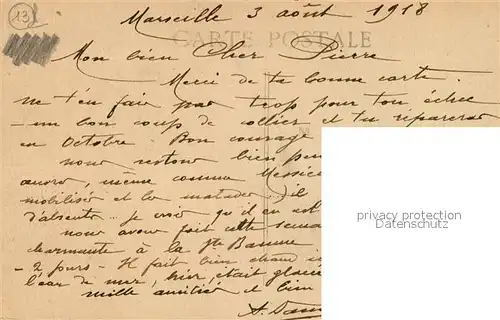 13
Marseille 3 août 1918
CARTE POSTALE
Mon bien Cher Pierre
Merci de ta bonne carte.
ne t'en fais pas trop pour ton échec
- un bon coup de collier et tu répareras
en Octobre. Bon courage
nous restons bien peu
encore, même comme Messieurs
mobilisés et les malades
d'absents .. je crois qu'il en est
nous avons fait cette semaine
charmante à la Ste Baume
- 2 jours - Il fait bien chaud
l'eau de mer, hier, était glacée
mille amitiés et bien
privacy protection
AnsichtskartenVersand.com